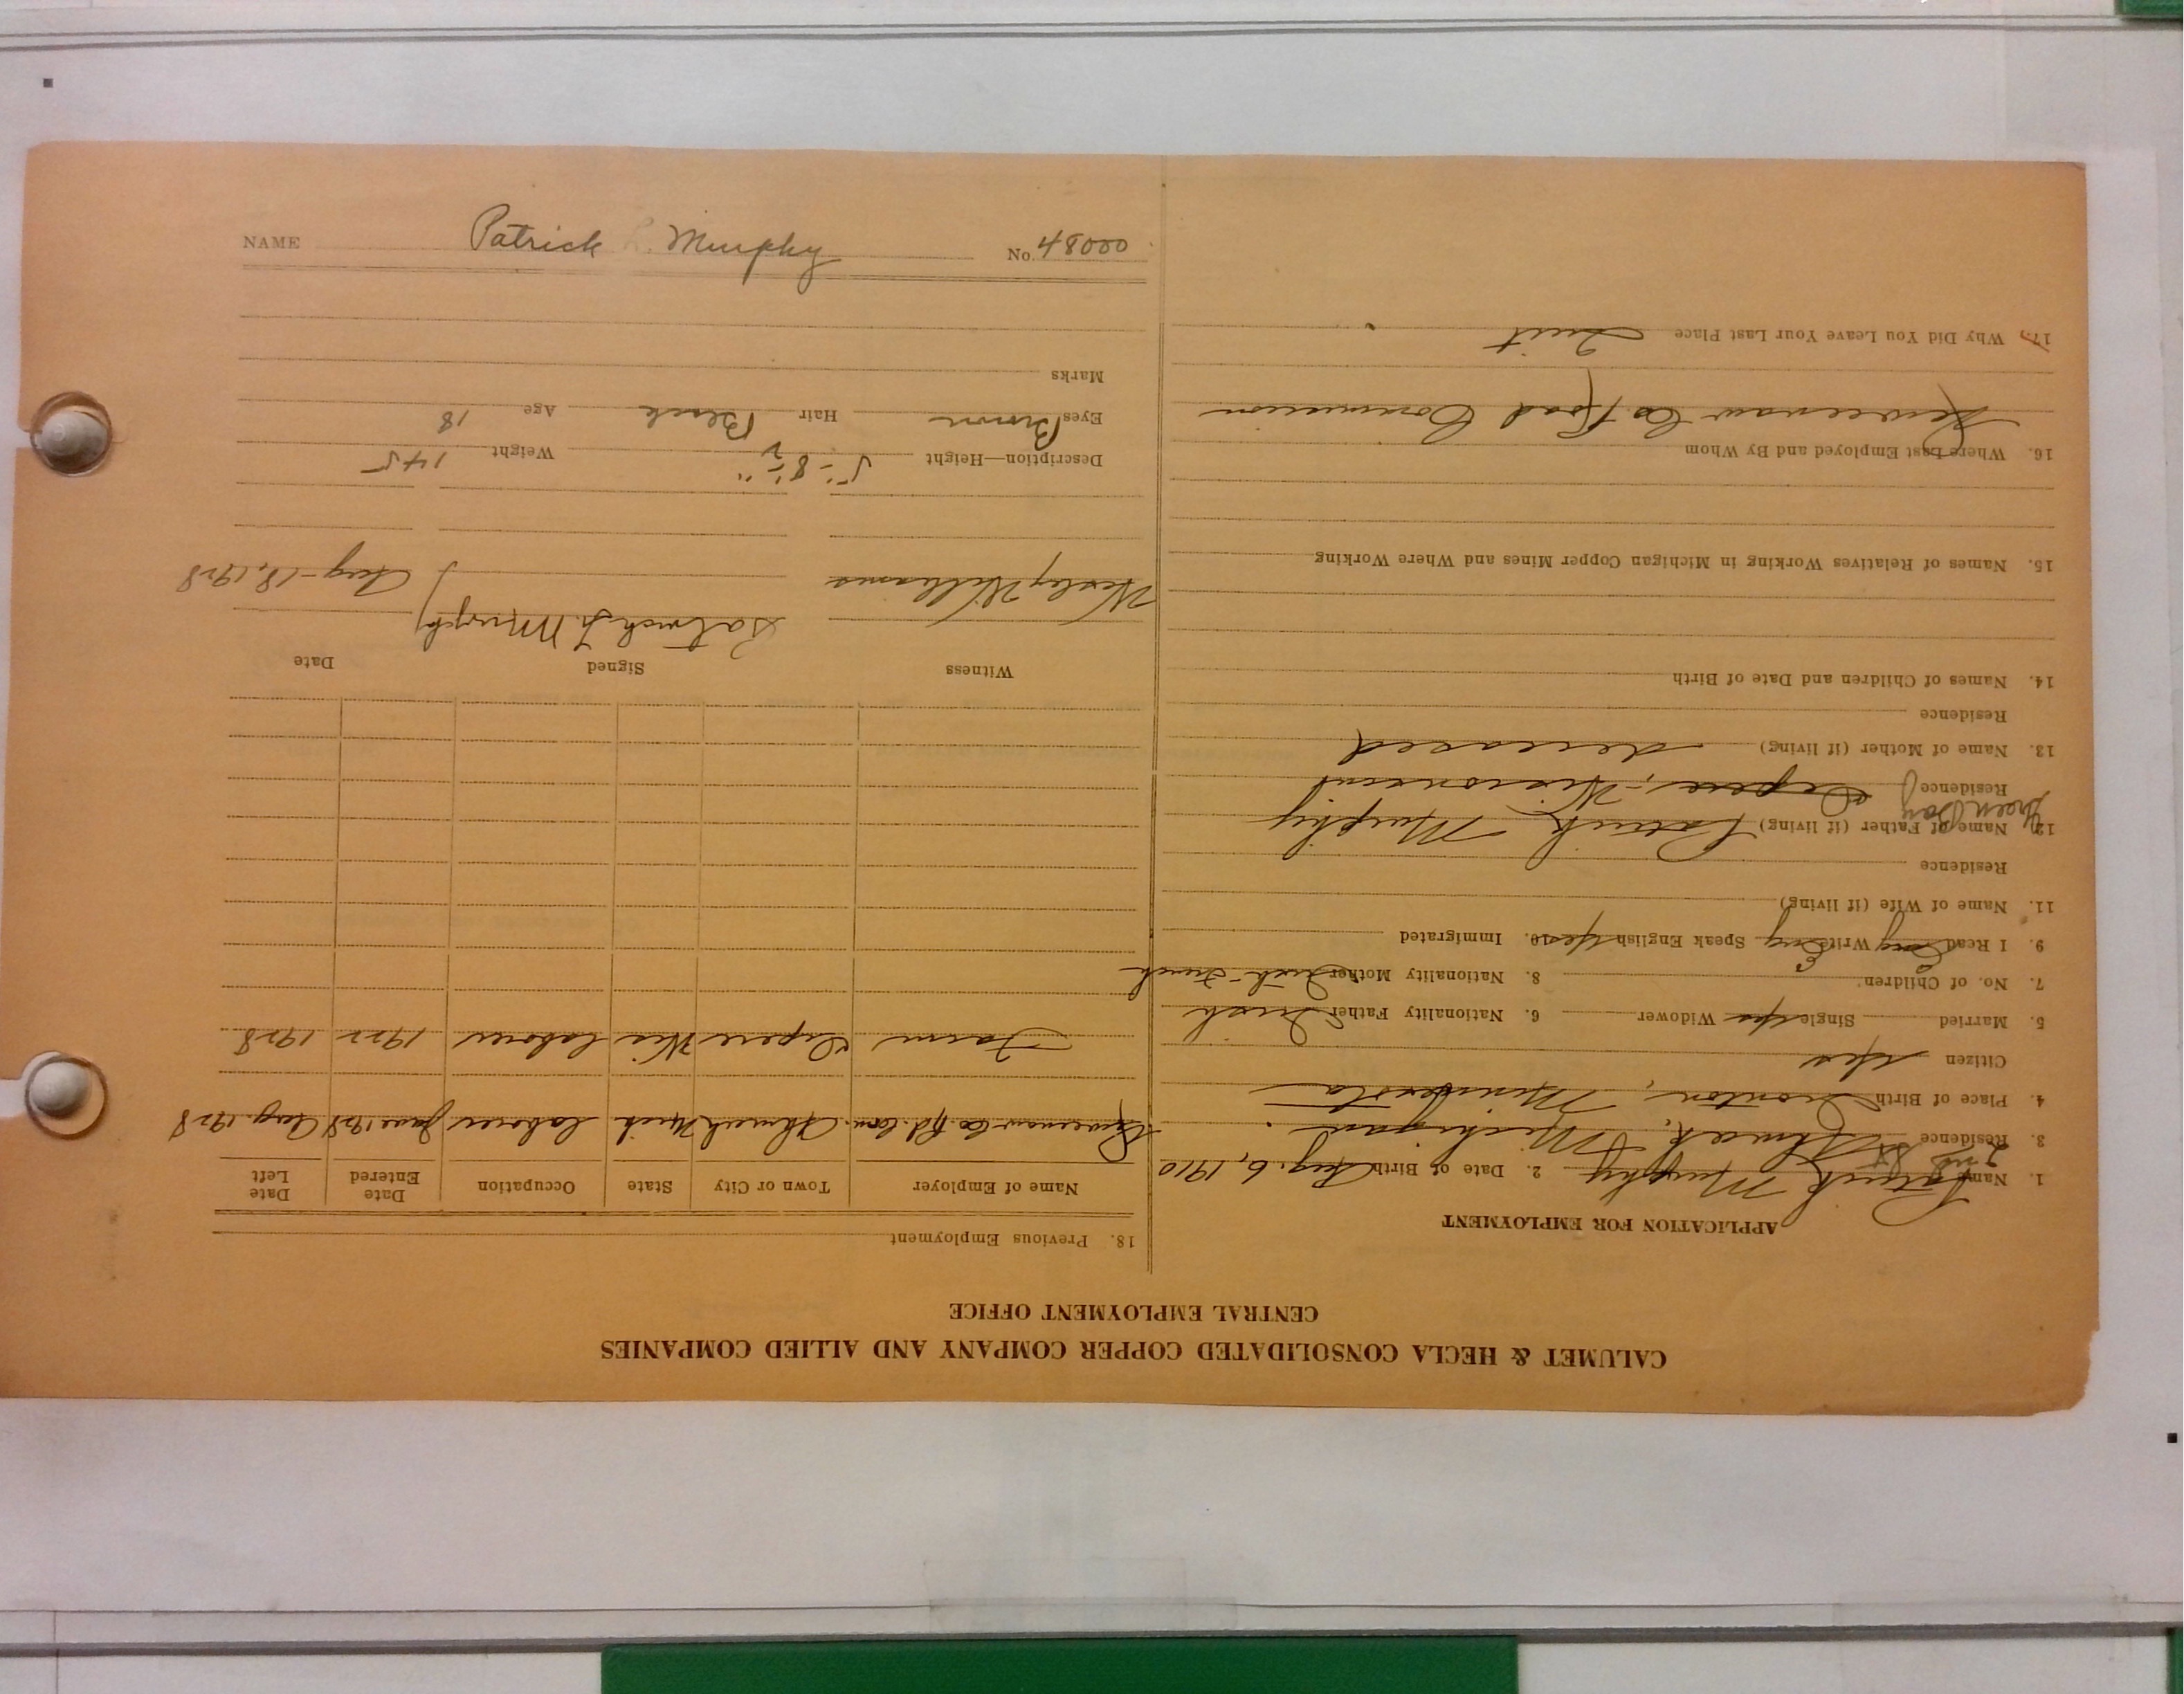 CALUMET & HECLA CONSOLIDATED COPPER COMPANY AND ALLIED COMPANIES
CENTRAL EMPLOYMENT OFFICE
APPLICATION FOR EMPLOYMENT
1. Name Patrick Murphy 2. Date of Birth Aug. 6, 1910
2nd St
3. Residence Ahmeek, Michigan
4. Place of Birth Ironton, Minnesota
Citizen Yes
5. Married Single Yes Widower 6. Nationality Father Irish
7. No. of Children 8. Nationality Mother Irish-French
9. I Read Eng Write Eng Speak English Yes 10. Immigrated
11. Name of Wife (if living)
Residence
12. Name of Father (if living) Patrick Murphy
Green Bay
Residence Depere, Wisconsin
13. Name of Mother (if living) deceased
Residence
14. Names of Children and Date of Birth
15. Names of Relatives Working in Michigan Copper Mines and Where Working
16. Where Last Employed and By Whom
Keweenaw Co Road Commission
17. Why Did You Leave Your Last Place Quit
18. Previous Employment
Name of Employer Town or City State Occupation Date Entered Date Left
Keweenaw Co. Rd. Com. Ahmeek Mich laborer June 1928 Aug. 1928
Farm Depere Wis laborer 1922 1928
Witness Signed Date
Patrick L. Murphy
Wesley Williams Aug-18, 1928
Description—Height 5'-8½" Weight 145
Eyes Brown Hair Black Age 18
Marks
NAME Patrick L. Murphy No. 48000